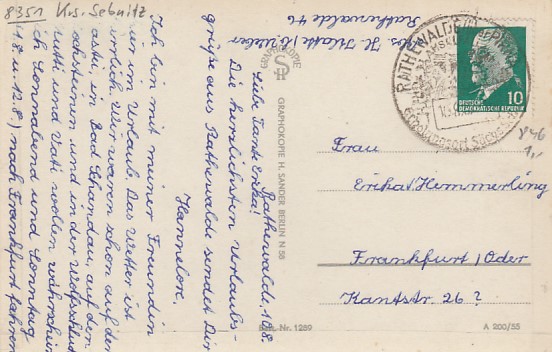 8351 Krs. Sebnitz
Abs. H. Klatte b/Weber
Rathewalde 46
Rathewalde, 12.8.
Liebe Tante Erika!
Die herzlichsten Urlaubs-
grüße aus Rathewalde sendet Dir
Hannelore.
Ich bin mit meiner Freundin
hier im Urlaub. Das Wetter ist
herrlich. Wir waren schon auf der
Bastei, in Bad Schandau, auf den
und in der Wolfsschlucht
Mutti und Vati wollen wahrschein-
lich Sonnabend und Sonntag
(11.8. u. 12.8.) nach Frankfurt fahren.
GRAPHOKOPIE
GRAPHOKOPIE H. SANDER BERLIN N 58
Best.-Nr. 1289
A 200/55
RATHEWALDE
DEUTSCHE
DEMOKRATISCHE REPUBLIK
10
846
1,-
Frau
Erika Hemmerling
Frankfurt/Oder
Kantstr. 26?